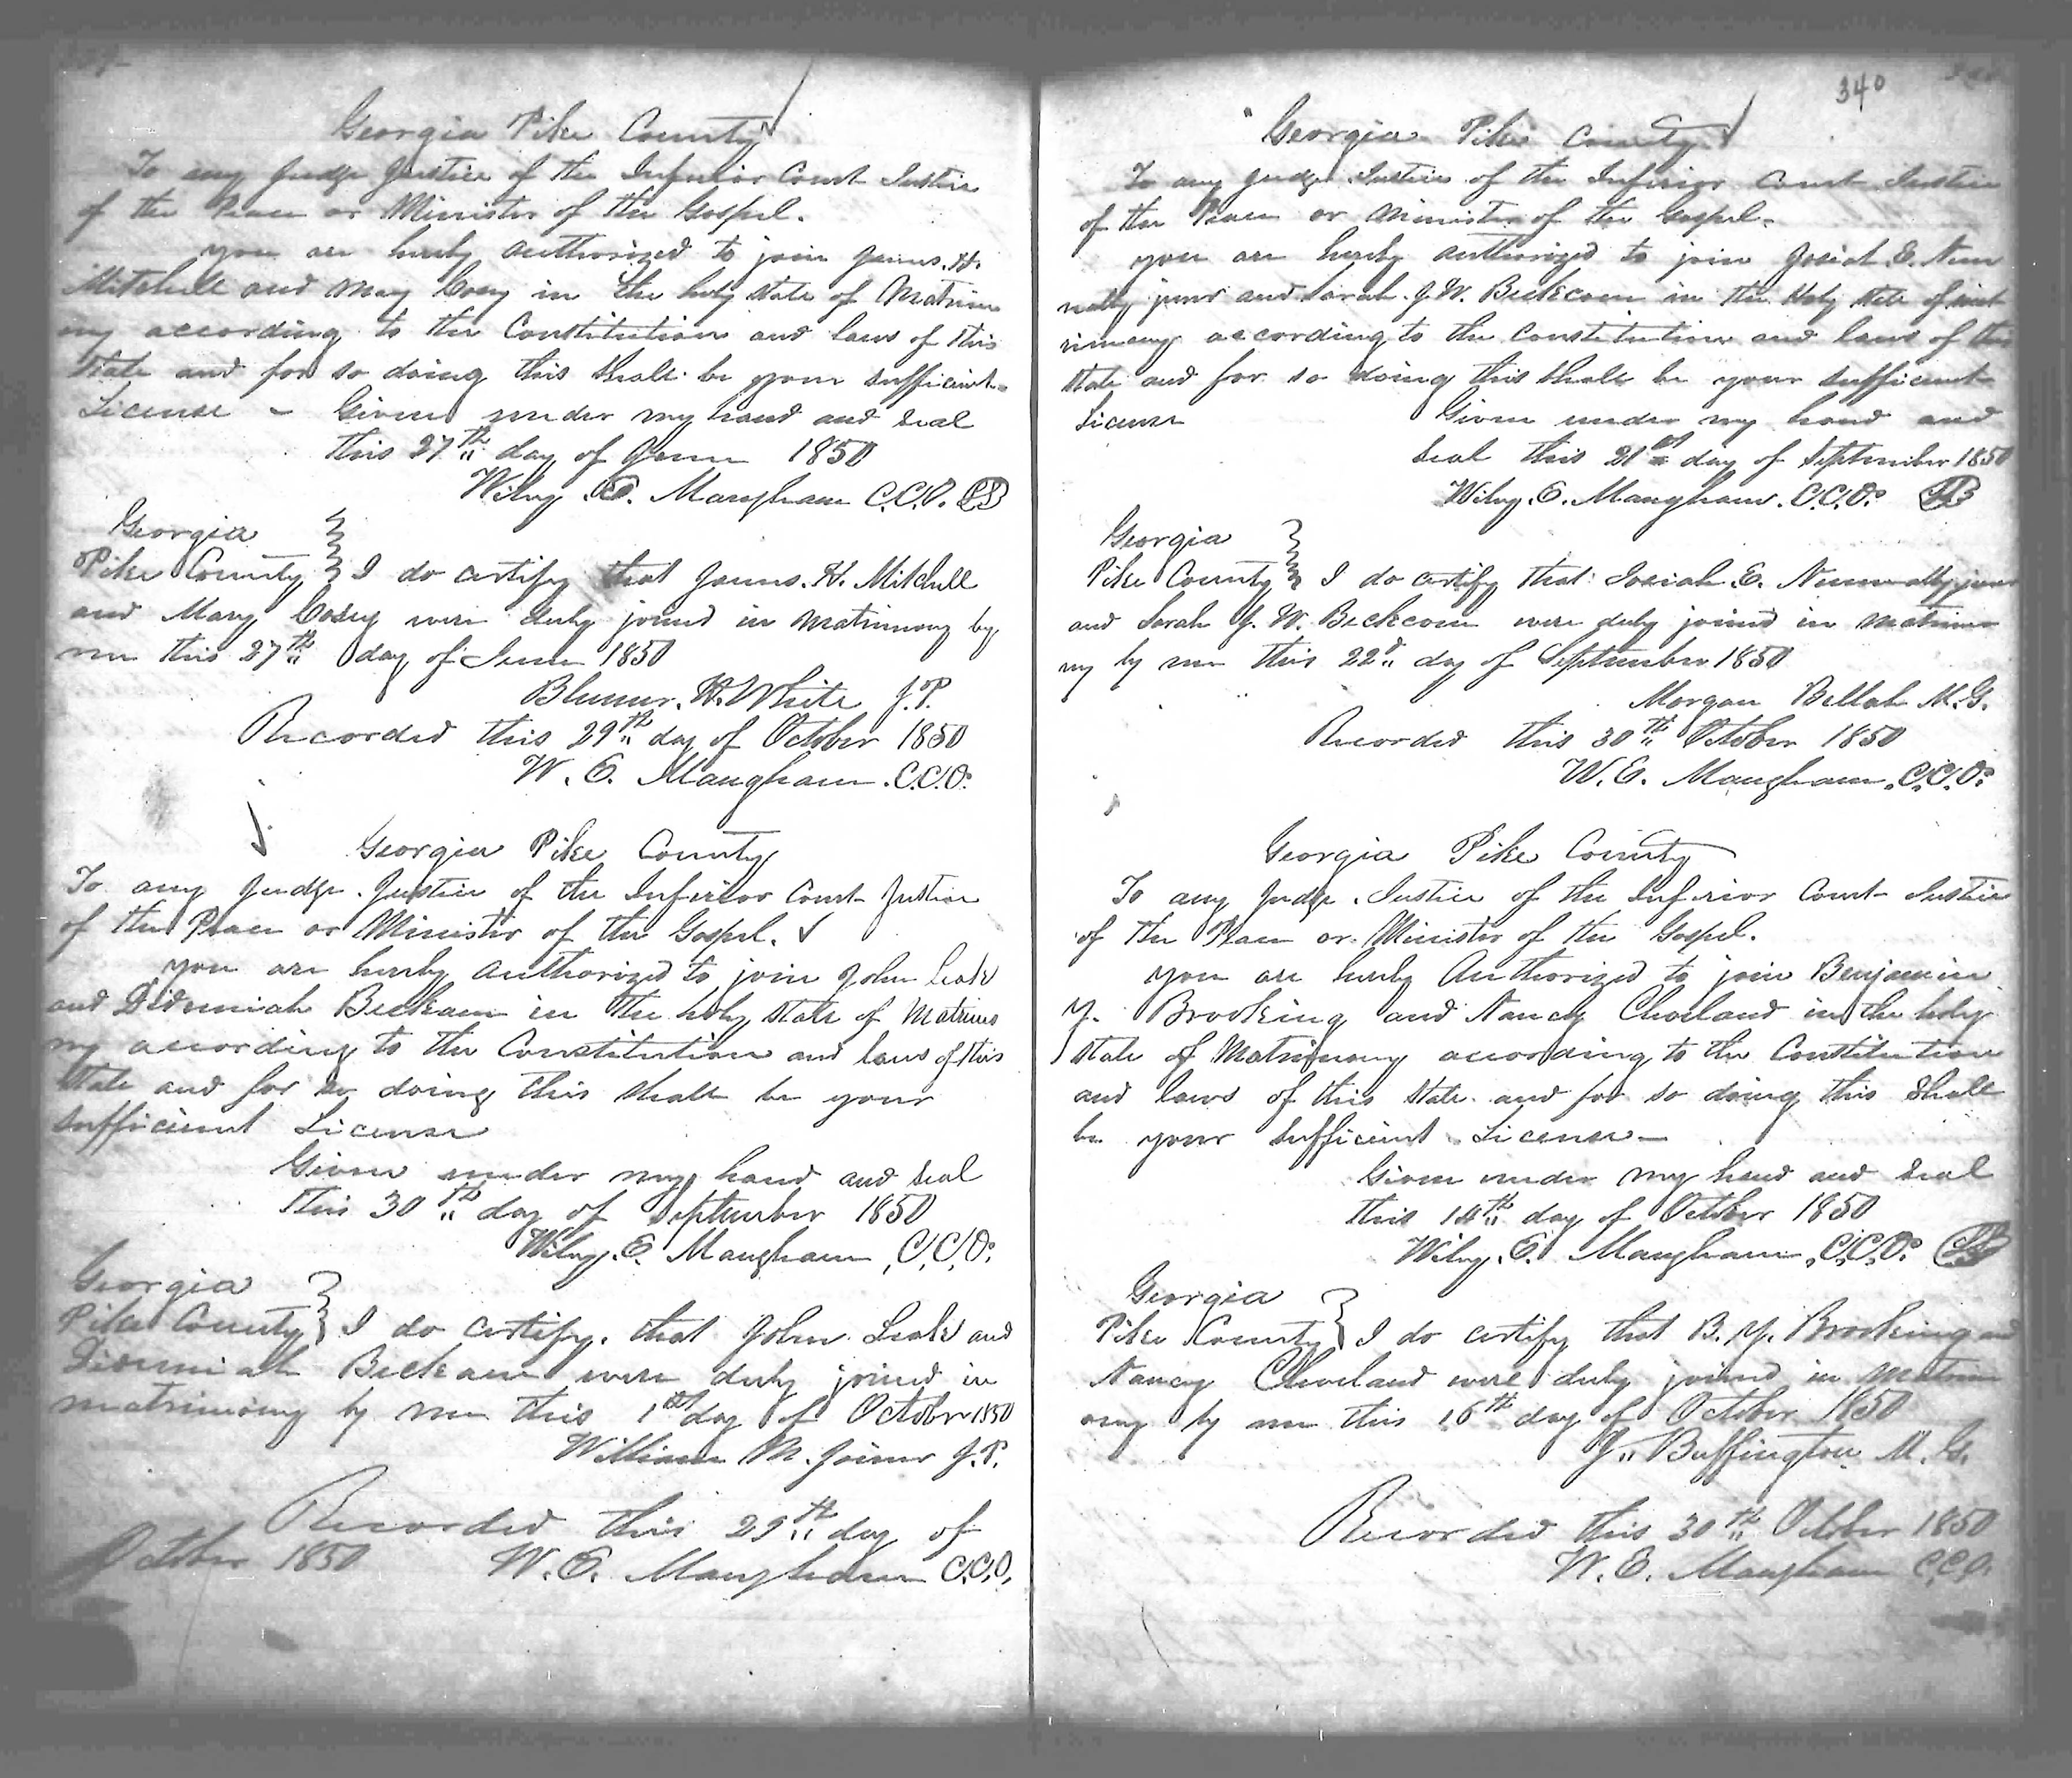 Georgia Pike County
To any Judge Justice of the Inferior Court Justice
of the Peace or Minister of the Gospel.
you are hereby authorized to join James. H.
Mitchell and Mary Cosey in the holy state of Matrimo
ny according to the Constitution and laws of this
State and for so doing this shall be your sufficient
License - Given under my hand and seal
this 27th day of June 1850
Wiley. E. Mangham C.C.O. LS
Georgia
Pike County I do certify that James. H. Mitchell
and Mary Cosey were duly joined in matrimony by
me this 27th day of June 1850
H. White J.P.
Recorded this 29th day of October 1850
W. E. Mangham. C.C.O.
Georgia Pike County
To any Judge. Justice of the Inferior Court Justice
of the Peace or Minister of the Gospel.
you are hereby authorized to join John Leak
and Beckam in the holy state of Matrimo
ny according to the Constitution and laws of this
State and for so doing this shall be your
sufficient License
Given under my hand and seal
this 30th day of September 1850
Wiley. E. Mangham, C.C.O.
Georgia
Pike County I do certify. that John Leak and
Beckam were duly joined in
matrimony by me this 1st day of October 1850
William M. Joiner J.P.
Recorded this 29th day of
October 1850 W. E. Mangham C.C.O.
340
Georgia Pike County
To any Judge Justice of the Inferior Court Justice
of the Peace or Minister of the Gospel.
you are hereby authorized to join Josiah E. Nun
nally junr and Sarah. J. W. Beckcom in the Holy state of mat
rimony according to the Constitution and laws of this
State and for so doing this shall be your sufficient
License Given under my hand and
seal this 21st day of September 1850
Wiley. E. Mangham. C.C.O. LS
Georgia
Pike County I do certify that Josiah. E. Nunnally junr
and Sarah J. W. Beckcom were duly joined in matrimo
ny by me this 22d day of September 1850
Morgan Bellah M.G.
Recorded this 30th October 1850
W. E. Mangham. C.C.O.
Georgia Pike County
To any Judge. Justice of the Inferior Court Justice
of the Peace or Minister of the Gospel.
you are hereby Authorized to join Benjamin
Y. Brooking and Nancy Cleveland in the holy
State of Matrimony according to the Constitution
and laws of this State and for so doing this shall
be your sufficient License-
Given under my hand and seal
this 14th day of October 1850
Wiley. E. Mangham. C.C.O. LS
Georgia
Pike County I do certify that B. Y. Brooking and
Nancy Cleveland were duly joined in Matrim
ony by me this 16th day of October 1850
J. Buffington M. G.
Recorded this 30th October 1850
W. E. Mangham C.C.O.